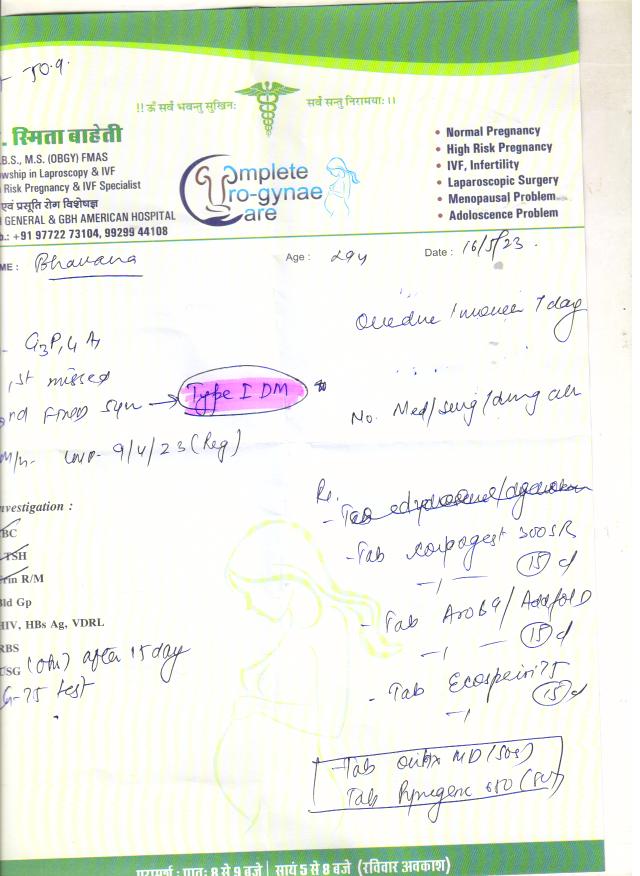 !! ॐ सर्वे भवन्तु सुखिनः सर्वे सन्तु निरामयाः ।।
. स्मिता बाहेती
.B.S., M.S. (OBGY) FMAS
owship in Laproscopy & IVF
Risk Pregnancy & IVF Specialist
एवं प्रसूति रोग विशेषज्ञ
GENERAL & GBH AMERICAN HOSPITAL
b.: +91 97722 73104, 99299 44108
Complete
Uro-gynae
Care
• Normal Pregnancy
• High Risk Pregnancy
• IVF, Infertility
• Laparoscopic Surgery
• Menopausal Problem
• Adoloscence Problem
ME : Bhavana Age : 29y Date : 16/5/23.
Overdue 1 1 day
- G3P1L1A1
1st missed
Type I DM
No. Med/
LMP- 9/4/23 (Reg)
vestigation :
BC
TSH
rin R/M
Bld Gp
HIV, HBs Ag, VDRL
RBS
USG after 15 day
G-75 test
Rx.
- Tab
- Tab 300 SR
15 d
- Tab
15 d
- Tab Ecosprin 75
15 d
- Tab MD (SOS)
Tab 650 (SOS)
परामर्श : प्रातः 8 से 9 बजे | सायं 5 से 8 बजे (रविवार अवकाश)